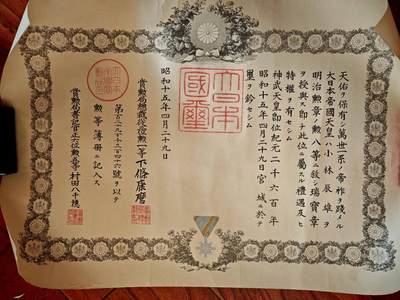 天佑ヲ保有シ萬世一系ノ帝祚ヲ踐メル
大日本帝國天皇ハ小林辰雄ヲ
明治勲章ノ勲八等ニ叙シ瑞寶章
ヲ授與ス即チ此位ニ屬スル禮遇及ヒ
特權ヲ有セシム
神武天皇即位紀元二千六百年
昭和十五年四月二十九日宮城ニ於テ
璽ヲ鈐セシム
大日本
國璽
昭和十五年四月二十九日
賞勲局總裁從三位勲一等下條康麿
號ヲ以テ
勲等簿冊ニ記入ス
賞勲局書記官正六位勲五等村田八千穂